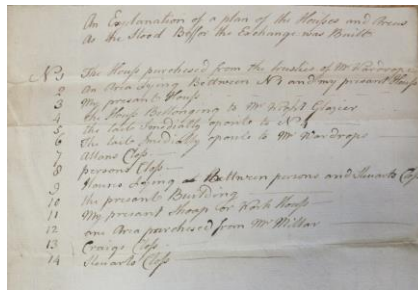 An Explanation of a plan of the Housses and Areas
As the Stood Beffor the Exchange was Built
No 1 The House purchesed from the trustees of Mr Wardrope
2 An Area Lying Bettween No 1 and my present House
3 My present House
4 The House Bellonging to Mr Glazier
5 The laich oposite to No 1
6 The laich oposite to Mr Wardrops
7 Allans Closs
8 persons Closs
9 Houses Lying Bettween persons and Steuarts Closs
10 the present Building
11 My present Shoap or Work House
12 ane Area purchesed from Mr Millar
13 Craigs Closs
14 Steuarts Closs